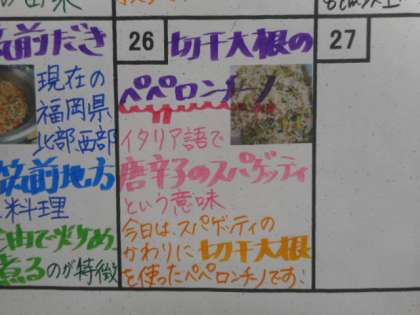 筑前だき
現在の
福岡県
北部西部
筑前地方
料理
油で炒め
煮るのが特徴
26
切干大根の
ペペロンチーノ
イタリア語で
唐辛子のスパゲッティ
という意味
今日は、スパゲッティの
かわりに切干大根
を使ったペペロンチーノです!
27